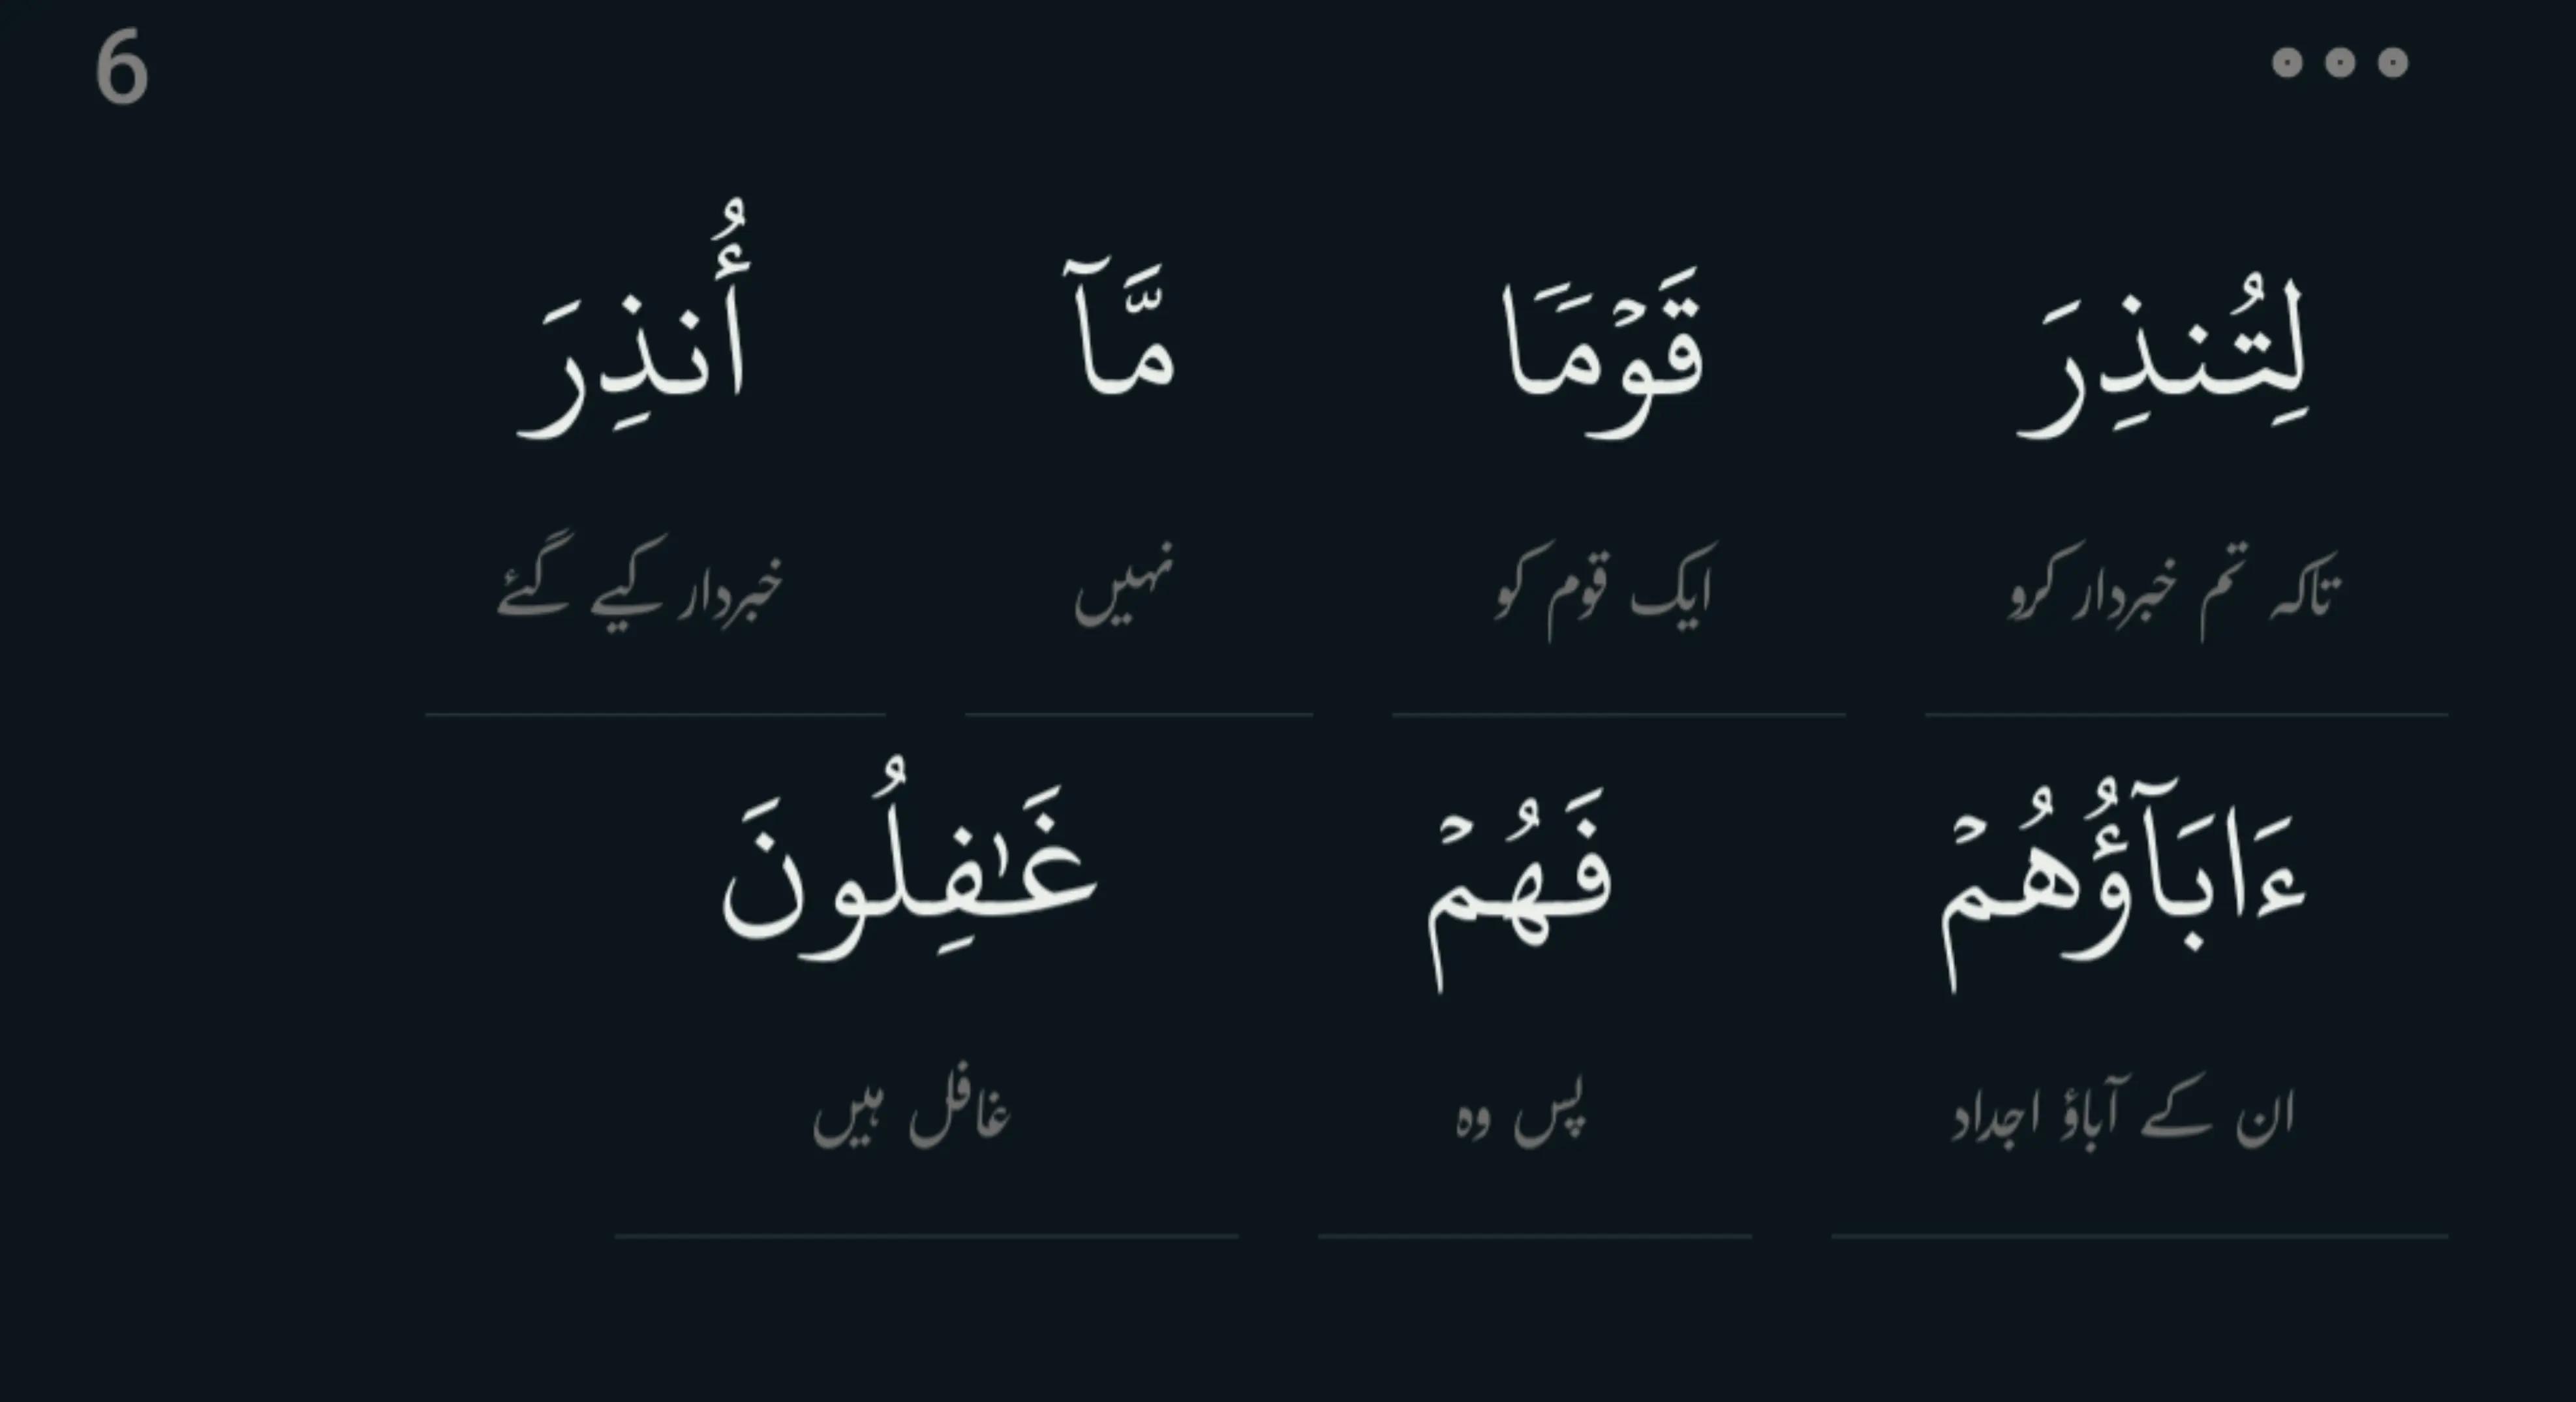 6
لِتُنذِرَ قَوۡمٗا مَّآ أُنذِرَ
تاکہ تم خبردار کرو ایک قوم کو نہیں خبردار کیے گئے
ءَابَآؤُهُمۡ فَهُمۡ غَٰفِلُونَ
ان کے آباؤ اجداد پس وہ غافل ہیں